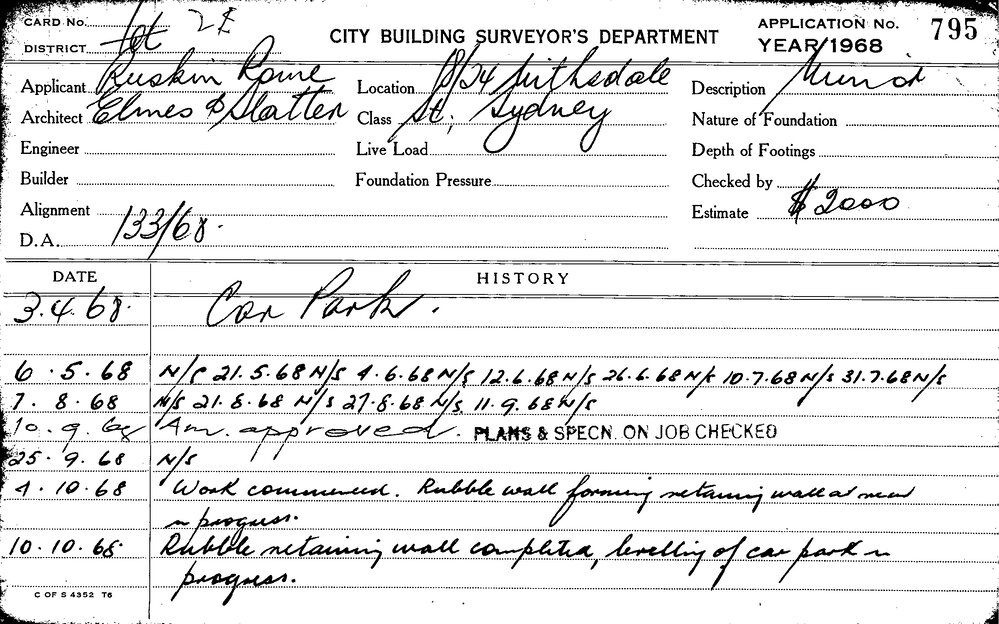 CARD No. 2E
DISTRICT
CITY BUILDING SURVEYOR'S DEPARTMENT
APPLICATION No. 795
YEAR/1968
Applicant Ruskin Rowe
Location 8/24 Nithsdale
Description Munid
Architect Elmes & Slatter
Class St, Sydney
Nature of Foundation
Engineer
Live Load
Depth of Footings
Builder
Foundation Pressure
Checked by
Alignment
Estimate $2000
D.A. 133/68.
DATE
HISTORY
3.4.68. Car Park.
6.5.68 N/S 21.5.68 N/S 4.6.68 N/S 12.6.68 N/S 26.6.68 N/S 10.7.68 N/S 31.7.68 N/S
7.8.68 N/S 21.8.68 N/S 27.8.68 N/S 11.9.68 N/S
10.9.68 Am. approved. PLANS & SPECN. ON JOB CHECKED
25.9.68 N/S
4.10.68 Work commenced. Rubble wall forming retaining wall at rear
in progress.
10.10.68 Rubble retaining wall completed, levelling of car park in
progress.
C OF S 4352 T6